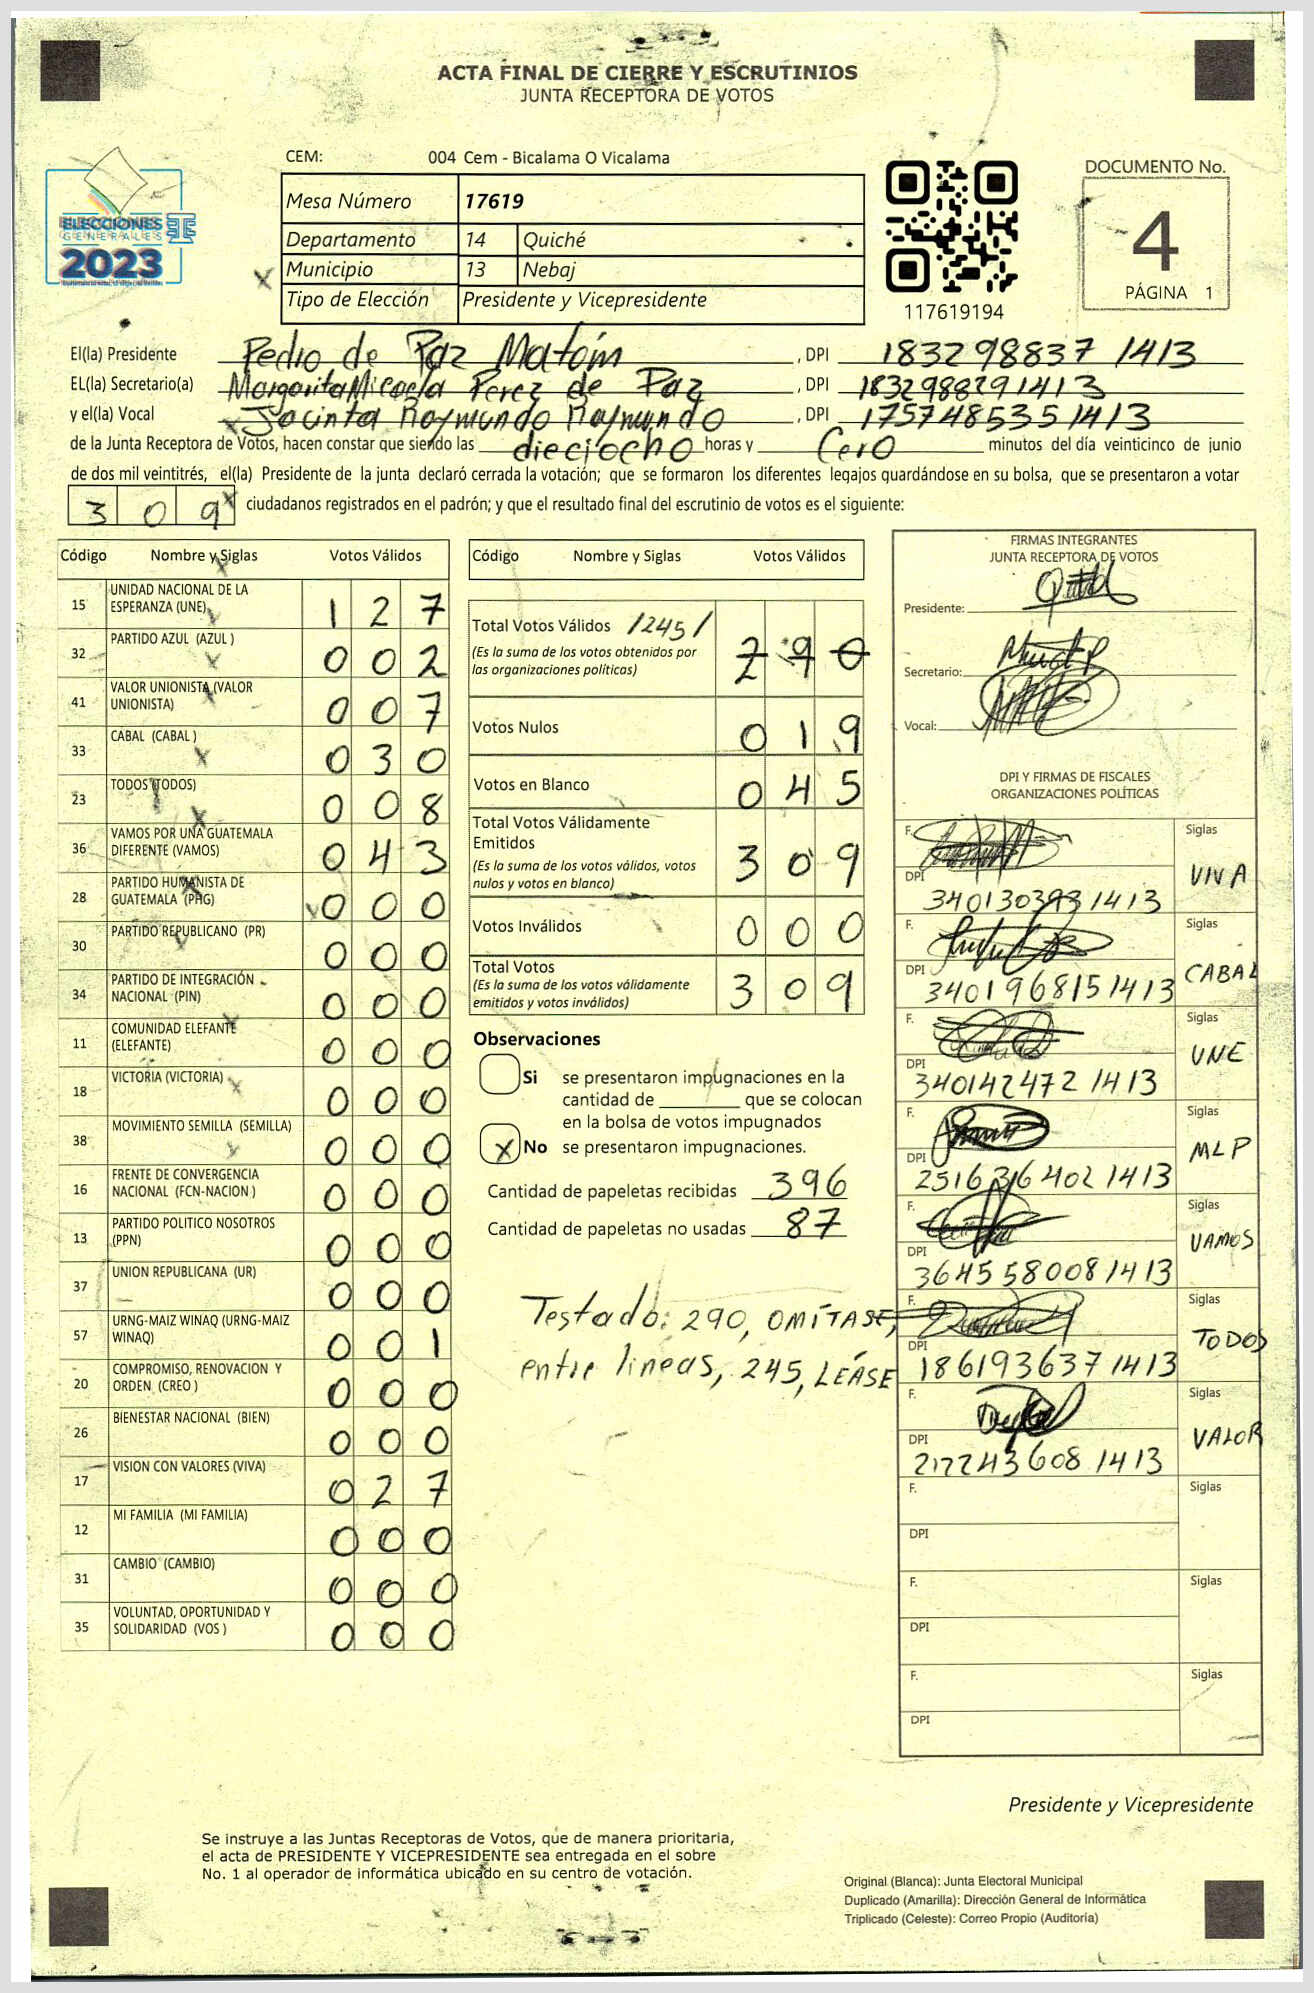 ACTA FINAL DE CIERRE Y ESCRUTINIOS
JUNTA RECEPTORA DE VOTOS
CEM: 004 Cem - Bicalama O Vicalama
ELECCIONES
GENERALES
2023
Mesa Número 17619
Departamento 14 Quiché
Municipio 13 Nebaj
Tipo de Elección Presidente y Vicepresidente
117619194
DOCUMENTO No.
4
PÁGINA 1
El(la) Presidente Pedro de Paz Matóm, DPI 183298837 1413
EL(la) Secretario(a) Margarita Micaela Perez de Paz, DPI 1832988291413
y el(la) Vocal Jacinta Raymundo Raymundo, DPI 1757485351413
de la Junta Receptora de Votos, hacen constar que siendo las dieciocho horas y Cero minutos del día veinticinco de junio
de dos mil veintitrés, el(la) Presidente de la junta declaró cerrada la votación; que se formaron los diferentes legajos guardándose en su bolsa, que se presentaron a votar
309 ciudadanos registrados en el padrón; y que el resultado final del escrutinio de votos es el siguiente:
Código Nombre y Siglas Votos Válidos
15 UNIDAD NACIONAL DE LA ESPERANZA (UNE) 1 2 7
32 PARTIDO AZUL (AZUL ) 0 0 2
41 VALOR UNIONISTA (VALOR UNIONISTA) 0 0 7
33 CABAL (CABAL ) 0 3 0
23 TODOS (TODOS) 0 0 8
36 VAMOS POR UNA GUATEMALA DIFERENTE (VAMOS) 0 4 3
28 PARTIDO HUMANISTA DE GUATEMALA (PHG) 0 0 0
30 PARTIDO REPUBLICANO (PR) 0 0 0
34 PARTIDO DE INTEGRACIÓN NACIONAL (PIN) 0 0 0
11 COMUNIDAD ELEFANTE (ELEFANTE) 0 0 0
18 VICTORIA (VICTORIA) 0 0 0
38 MOVIMIENTO SEMILLA (SEMILLA) 0 0 0
16 FRENTE DE CONVERGENCIA NACIONAL (FCN-NACION ) 0 0 0
13 PARTIDO POLITICO NOSOTROS (PPN) 0 0 0
37 UNION REPUBLICANA (UR) 0 0 0
57 URNG-MAIZ WINAQ (URNG-MAIZ WINAQ) 0 0 1
20 COMPROMISO, RENOVACION Y ORDEN (CREO ) 0 0 0
26 BIENESTAR NACIONAL (BIEN) 0 0 0
17 VISION CON VALORES (VIVA) 0 2 7
12 MI FAMILIA (MI FAMILIA) 0 0 0
31 CAMBIO (CAMBIO) 0 0 0
35 VOLUNTAD, OPORTUNIDAD Y SOLIDARIDAD (VOS ) 0 0 0
Código Nombre y Siglas Votos Válidos
Total Votos Válidos /245/ 2 9 0
(Es la suma de los votos obtenidos por
las organizaciones políticas)
Votos Nulos 0 1 9
Votos en Blanco 0 4 5
Total Votos Válidamente
Emitidos 3 0 9
(Es la suma de los votos válidos, votos
nulos y votos en blanco)
Votos Inválidos 0 0 0
Total Votos 3 0 9
(Es la suma de los votos válidamente
emitidos y votos inválidos)
Observaciones
Si se presentaron impugnaciones en la
cantidad de ________ que se colocan
en la bolsa de votos impugnados
X No se presentaron impugnaciones.
Cantidad de papeletas recibidas 396
Cantidad de papeletas no usadas 87
Testado: 290, OMÍTASE,
entre lineas, 245, LÉASE
FIRMAS INTEGRANTES
JUNTA RECEPTORA DE VOTOS
Presidente:
Secretario:
Vocal:
DPI Y FIRMAS DE FISCALES
ORGANIZACIONES POLÍTICAS
F. Siglas VIVA
DPI 340130393 1413
F. Siglas CABAL
DPI 3401968151413
F. Siglas UNE
DPI 340142472 1413
F. Siglas MLP
DPI 251636402 1413
F. Siglas VAMOS
DPI 3645580081413
F. Siglas TODOS
DPI 186193637 1413
F. Siglas VALOR
DPI 217243608 1413
F. Siglas
DPI
F. Siglas
DPI
F. Siglas
DPI
Presidente y Vicepresidente
Se instruye a las Juntas Receptoras de Votos, que de manera prioritaria,
el acta de PRESIDENTE Y VICEPRESIDENTE sea entregada en el sobre
No. 1 al operador de informática ubicado en su centro de votación.
Original (Blanca): Junta Electoral Municipal
Duplicado (Amarilla): Dirección General de Informática
Triplicado (Celeste): Correo Propio (Auditoría)